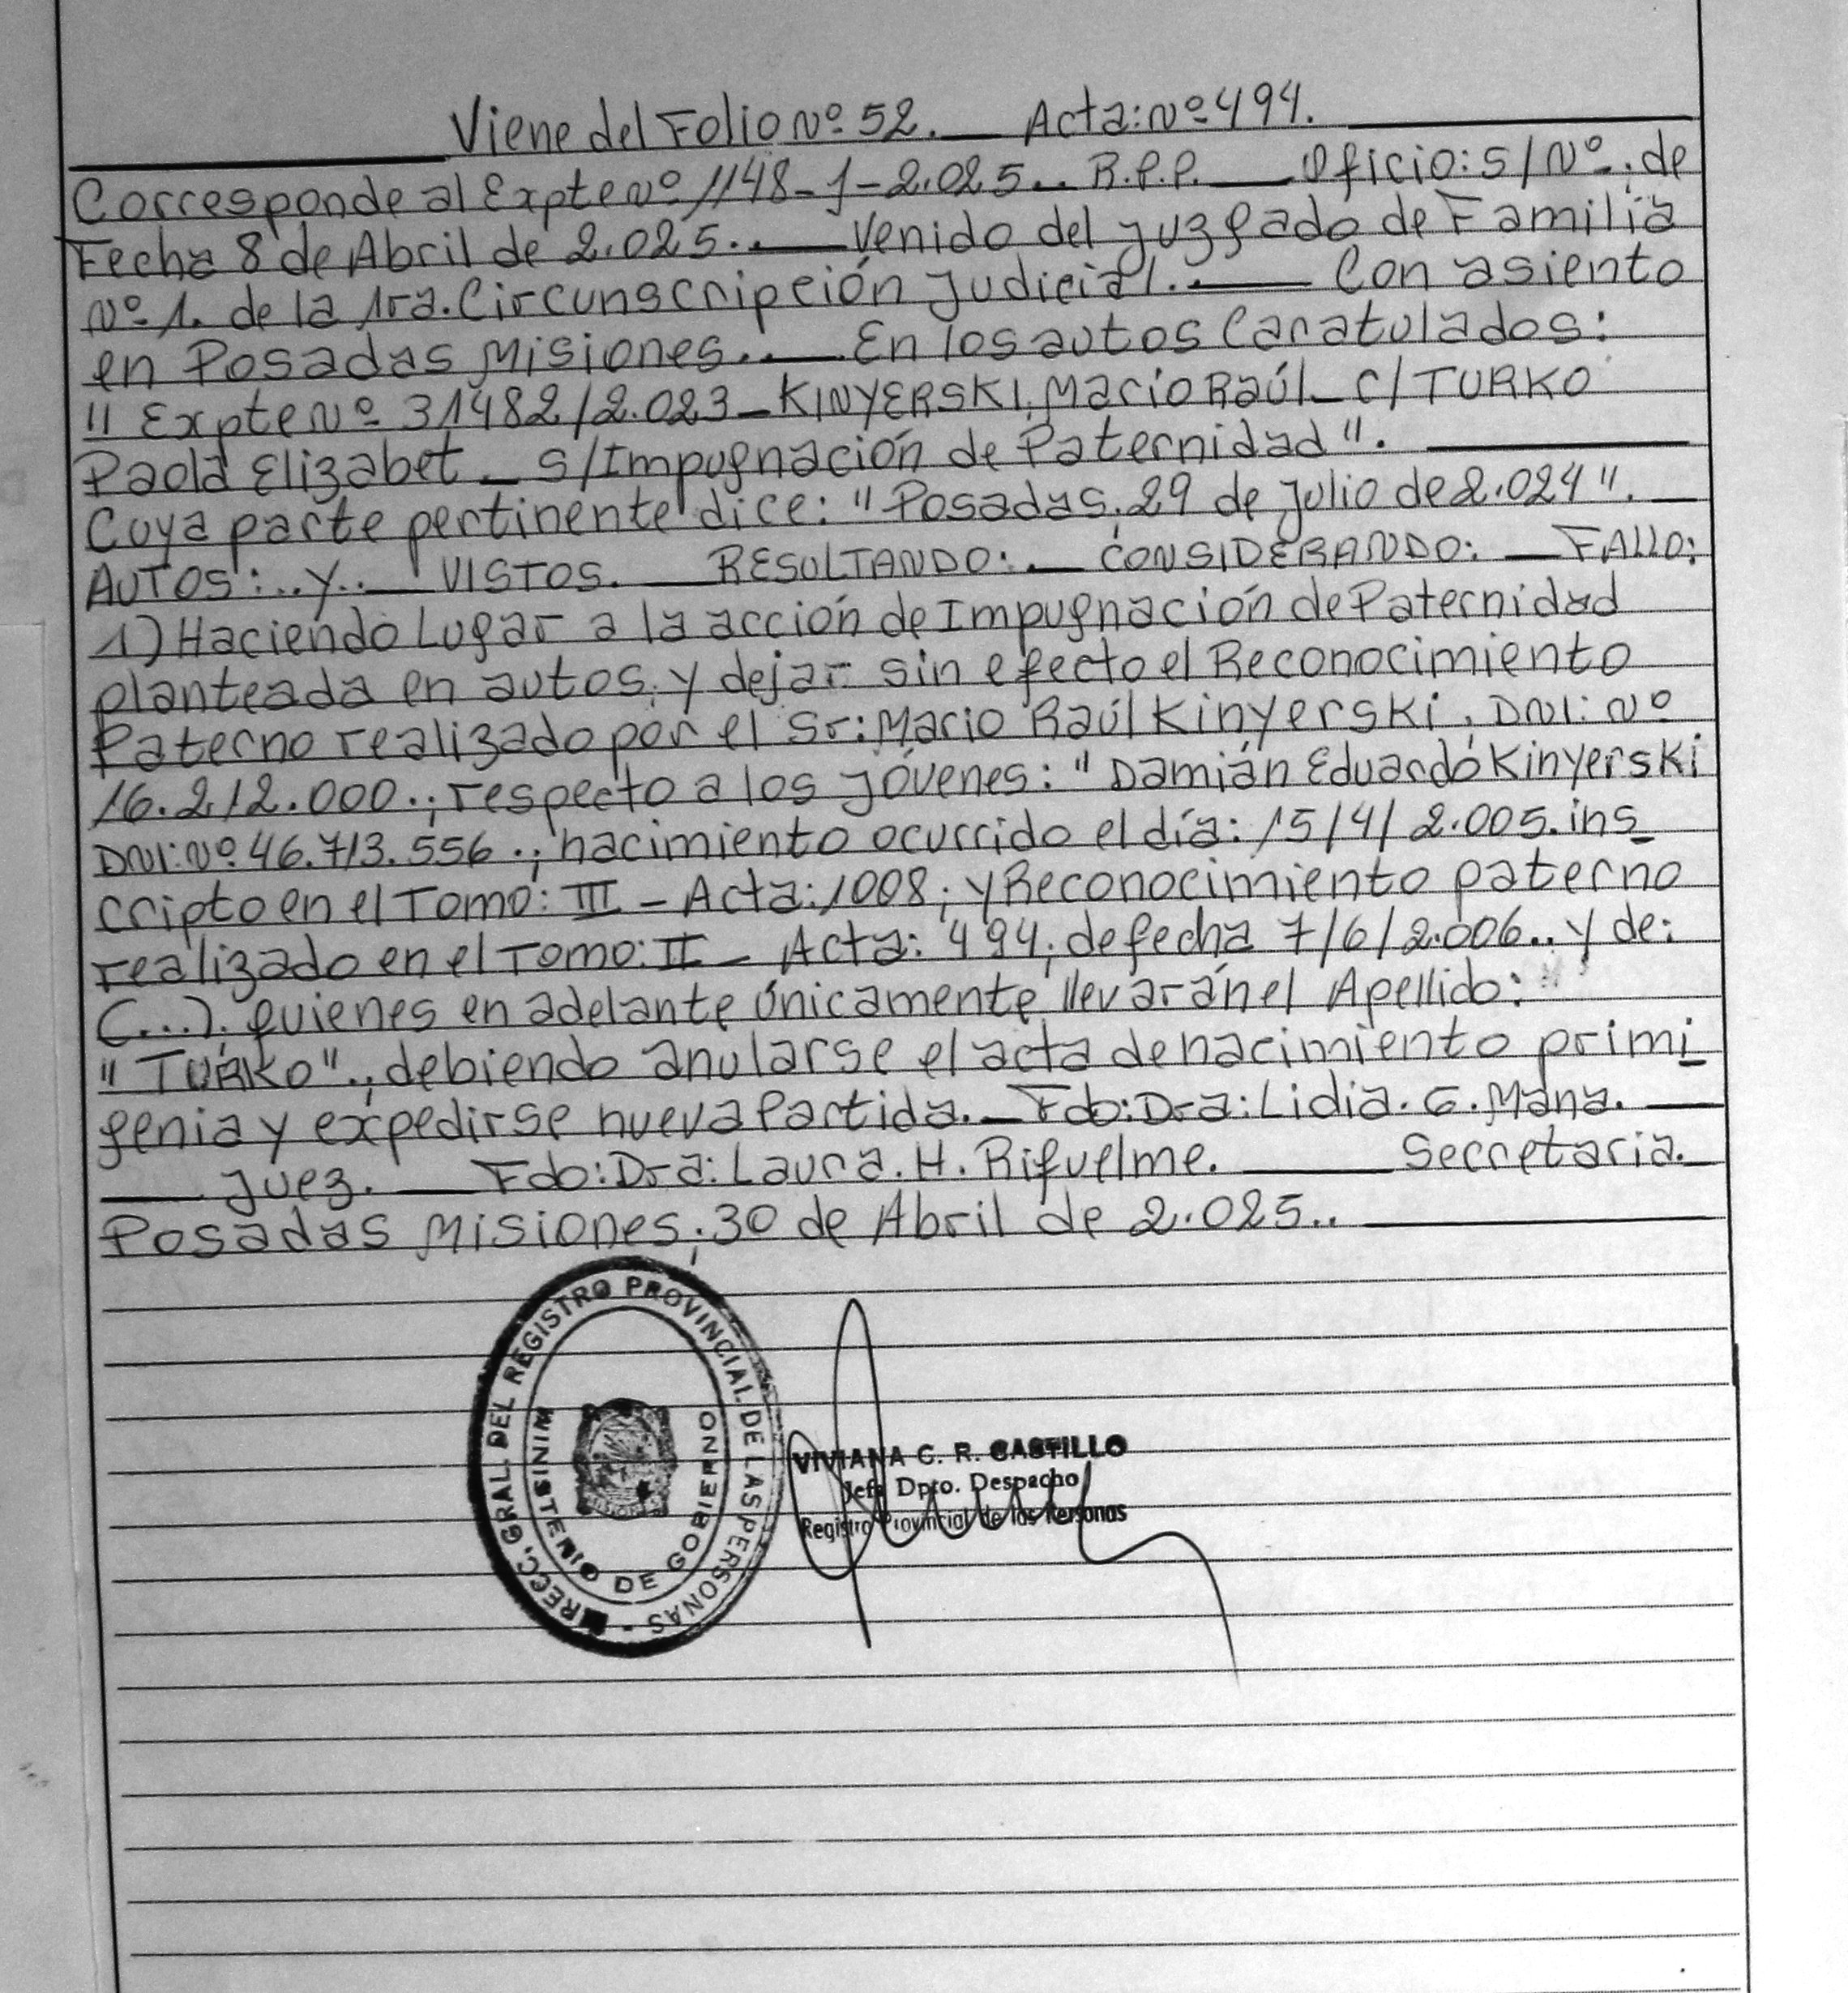 Viene del Folio Nº 52. Acta: Nº 494.
Corresponde al Expte Nº 1148-J-2.025.. R.P.P. Oficio: S/Nº; de
Fecha 8 de Abril de 2.025.. Venido del Juzgado de Familia
Nº 1. de la 1ra. Circunscripción Judicial.. Con asiento
en Posadas Misiones.. En los autos Caratulados:
"Expte Nº 31482/2.023 - KINYERSKI, Mario Raúl - C/ TURKO
Paola Elizabet - S/Impugnación de Paternidad".
Cuya parte pertinente dice: "Posadas, 29 de Julio de 2.024".
AUTOS:..Y.. VISTOS. RESULTANDO:. CONSIDERANDO: FALLO:
1) Haciendo Lugar a la acción de Impugnación de Paternidad
planteada en autos, y dejar sin efecto el Reconocimiento
Paterno realizado por el Sr: Mario Raúl Kinyerski, DNI: Nº
16.212.000.; respecto a los Jóvenes: "Damián Eduardo Kinyerski
DNI: Nº 46.713.556.; nacimiento ocurrido el día: 15/4/2.005. ins_
cripto en el Tomo: III - Acta: 1008; y Reconocimiento paterno
realizado en el Tomo: II - Acta: 494; de fecha 7/6/2.006.. y de:
(...). quienes en adelante únicamente llevarán el Apellido:
"TURKO".; debiendo anularse el acta de nacimiento primi_
genia y expedirse nueva Partida. Fdo: Dra: Lidia. G. Mana.
Juez. Fdo: Dra: Laura. H. Riquelme. Secretaria.
Posadas Misiones; 30 de Abril de 2.025..
DIRECC. GRAL. DEL REGISTRO PROVINCIAL DE LAS PERSONAS -
MINISTERIO DE GOBIERNO
VIVIANA C. R. CASTILLO
Jefe Dpto. Despacho
Registro Provincial de las Personas